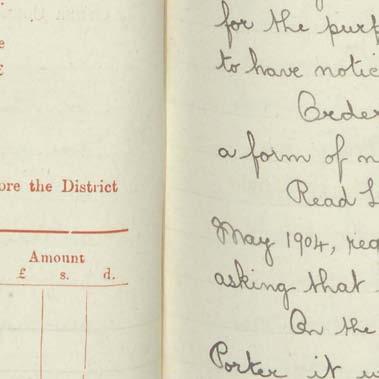 ore the District
Amount
£ s. d.
for the purp
to have notic
Order
a form of n
Read L
May 1904, req
asking that
On the
Porter it w